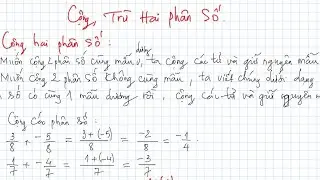 Cộng, Trừ Hai phân số.
Cộng hai phân số:
Muốn cộng 2 phân số cùng mẫu dương, ta cộng các tử và giữ nguyên mẫu
Muốn cộng 2 phân số không cùng mẫu, ta viết chúng dưới dạng
số có cùng 1 mẫu dương rồi, cộng các tử và giữ nguyên
Cộng các phân số:
3/8 + -5/8 = 3+(-5)/8 = -2/8 = -1/4.
1/7 + -4/7 = 1+(-4)/7 = -3/7